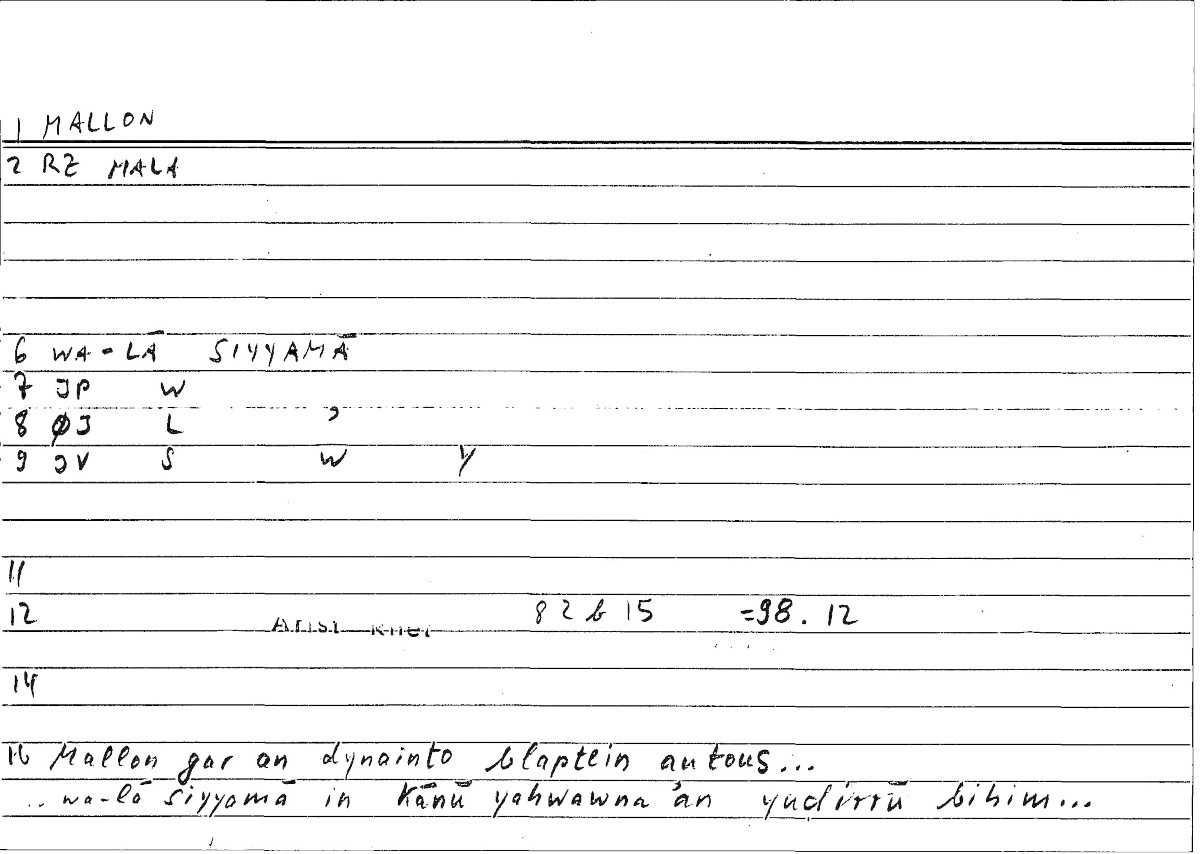 1 MALLON
2 RZ MALA
6 WA-LĀ SIYYAMĀ
7 JP W
8 ØJ L ʾ
9 JV S W Y
11
12 Arist Rhet 82 b 15 =98.12
14
16 Mallon gar an dynainto blaptein autous...
..wa-lā siyyamā in kānū yahwawna ʾan yuḍirrū bihim...